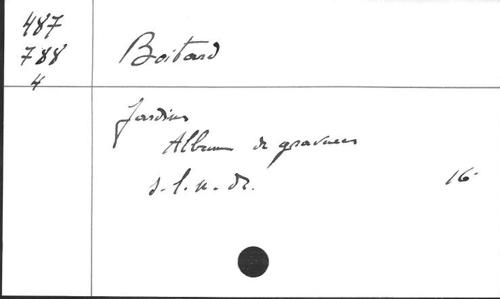 487
788
4
Boitard
Jardins
Album de gravures
s. l. n. d.
16